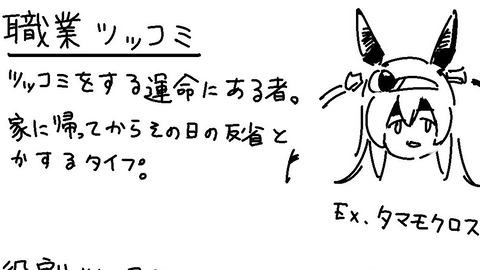 職業ツッコミ
ツッコミをする運命にある者。
家に帰ってからその日の反省と
かするタイプ。
Ex. タマモクロス